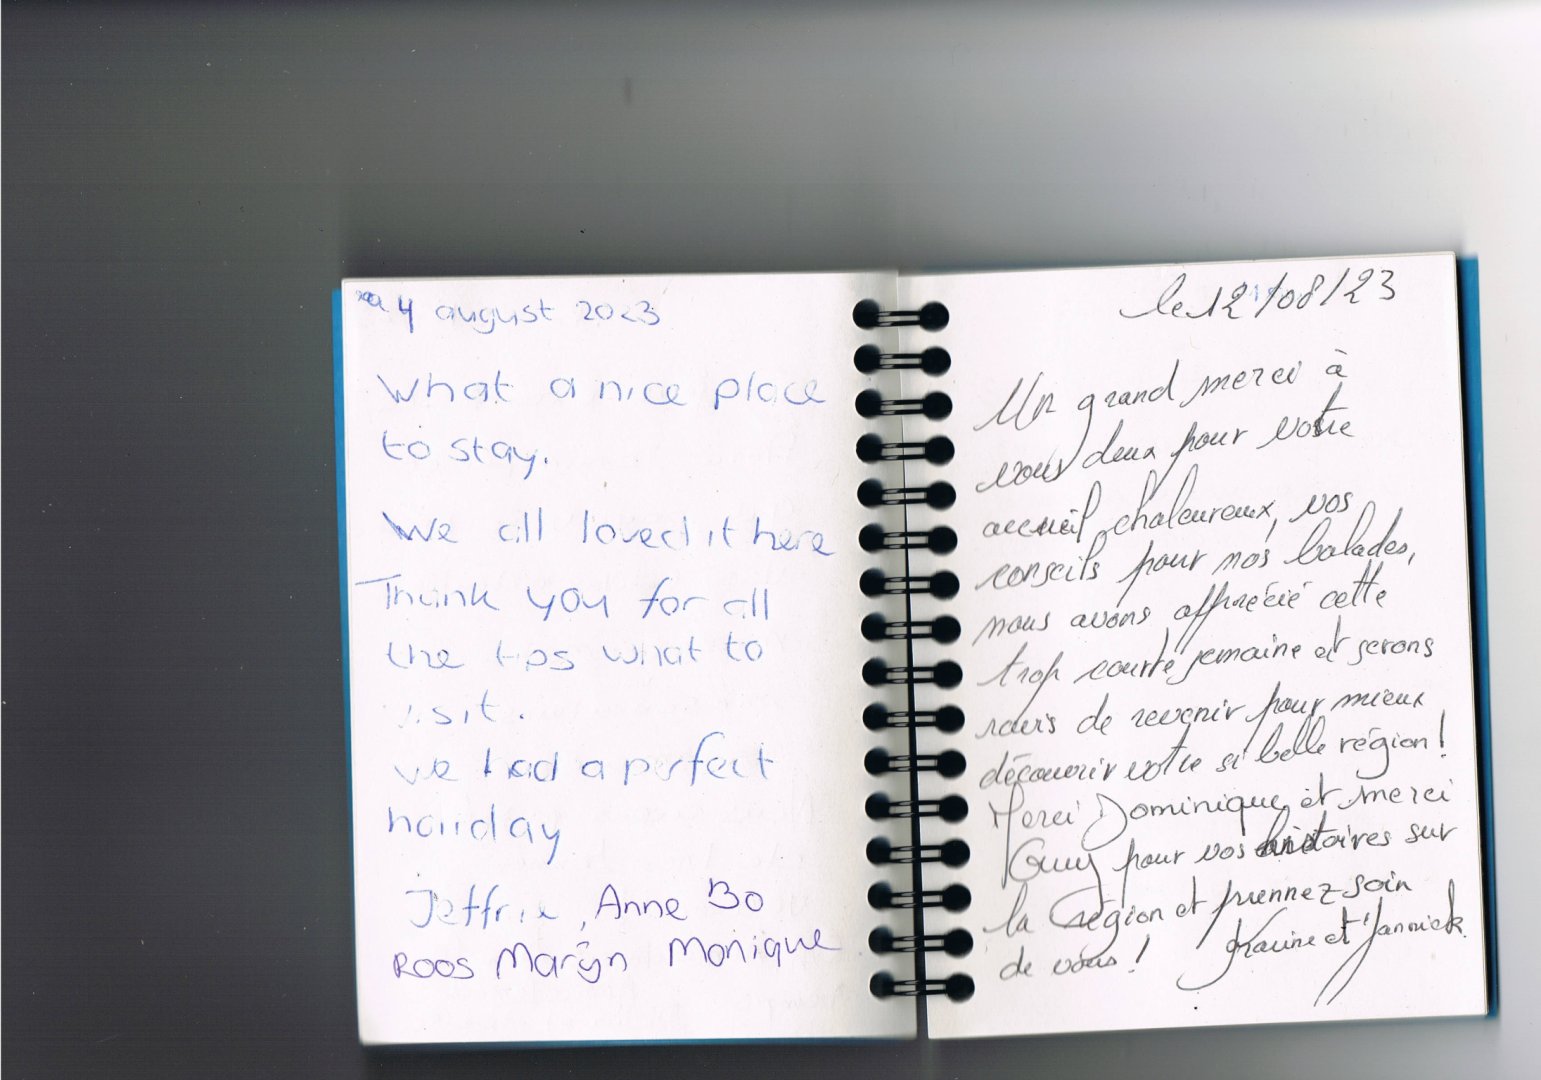 4 august 2023
What a nice place
to stay.
We all loved it here
Thank you for all
the tips what to
visit.
we had a perfect
holiday
Jeffrie, Anne Bo
ROOS Marijn Monique
le 12/08/23
Un grand merci à
vous deux pour votre
accueil chaleureux, vos
conseils pour nos balades,
nous avons apprécié cette
trop courte semaine et serons
ravis de revenir pour mieux
découvrir votre si belle région!
Merci Dominique et merci
Guy pour vos histoires sur
la région et prennez soin
de vous! et Yannick